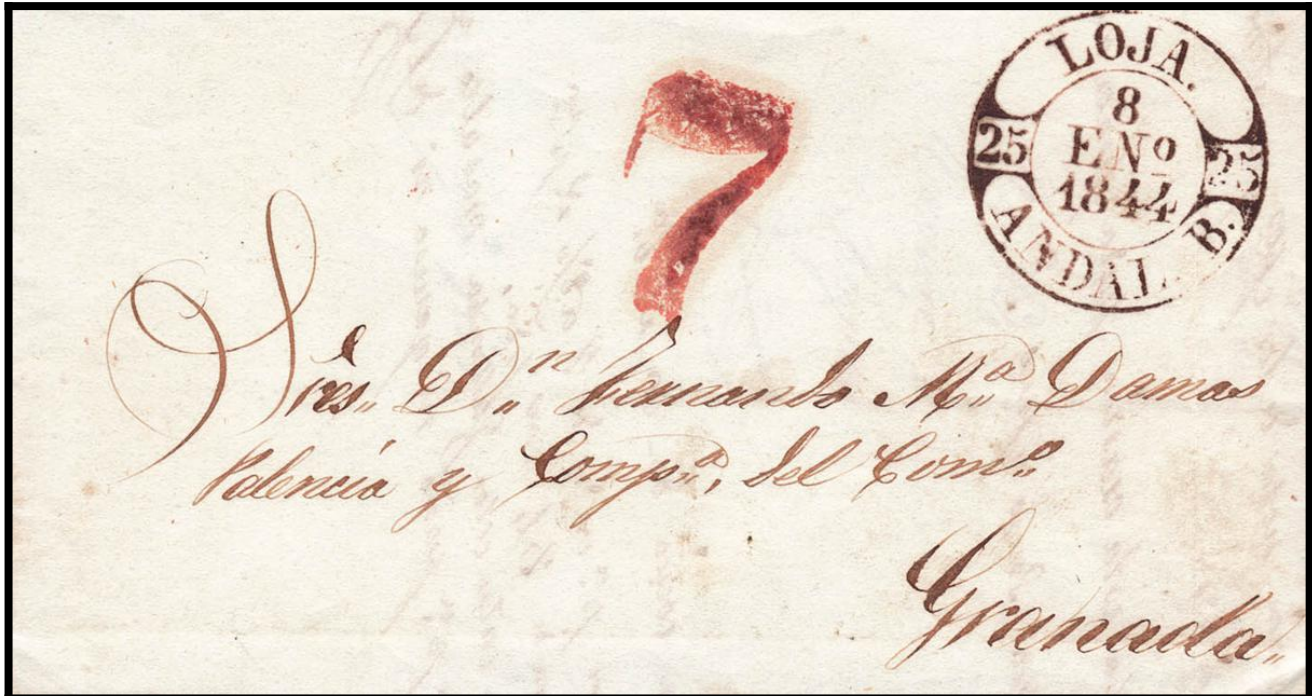 7
LOJA.
25 8 25
ENº
1844
ANDAL. B.
Sres,, Dn,, Fernando Mª,, Damas
Valencia y Compª,,, del Comº,,
Granada,,